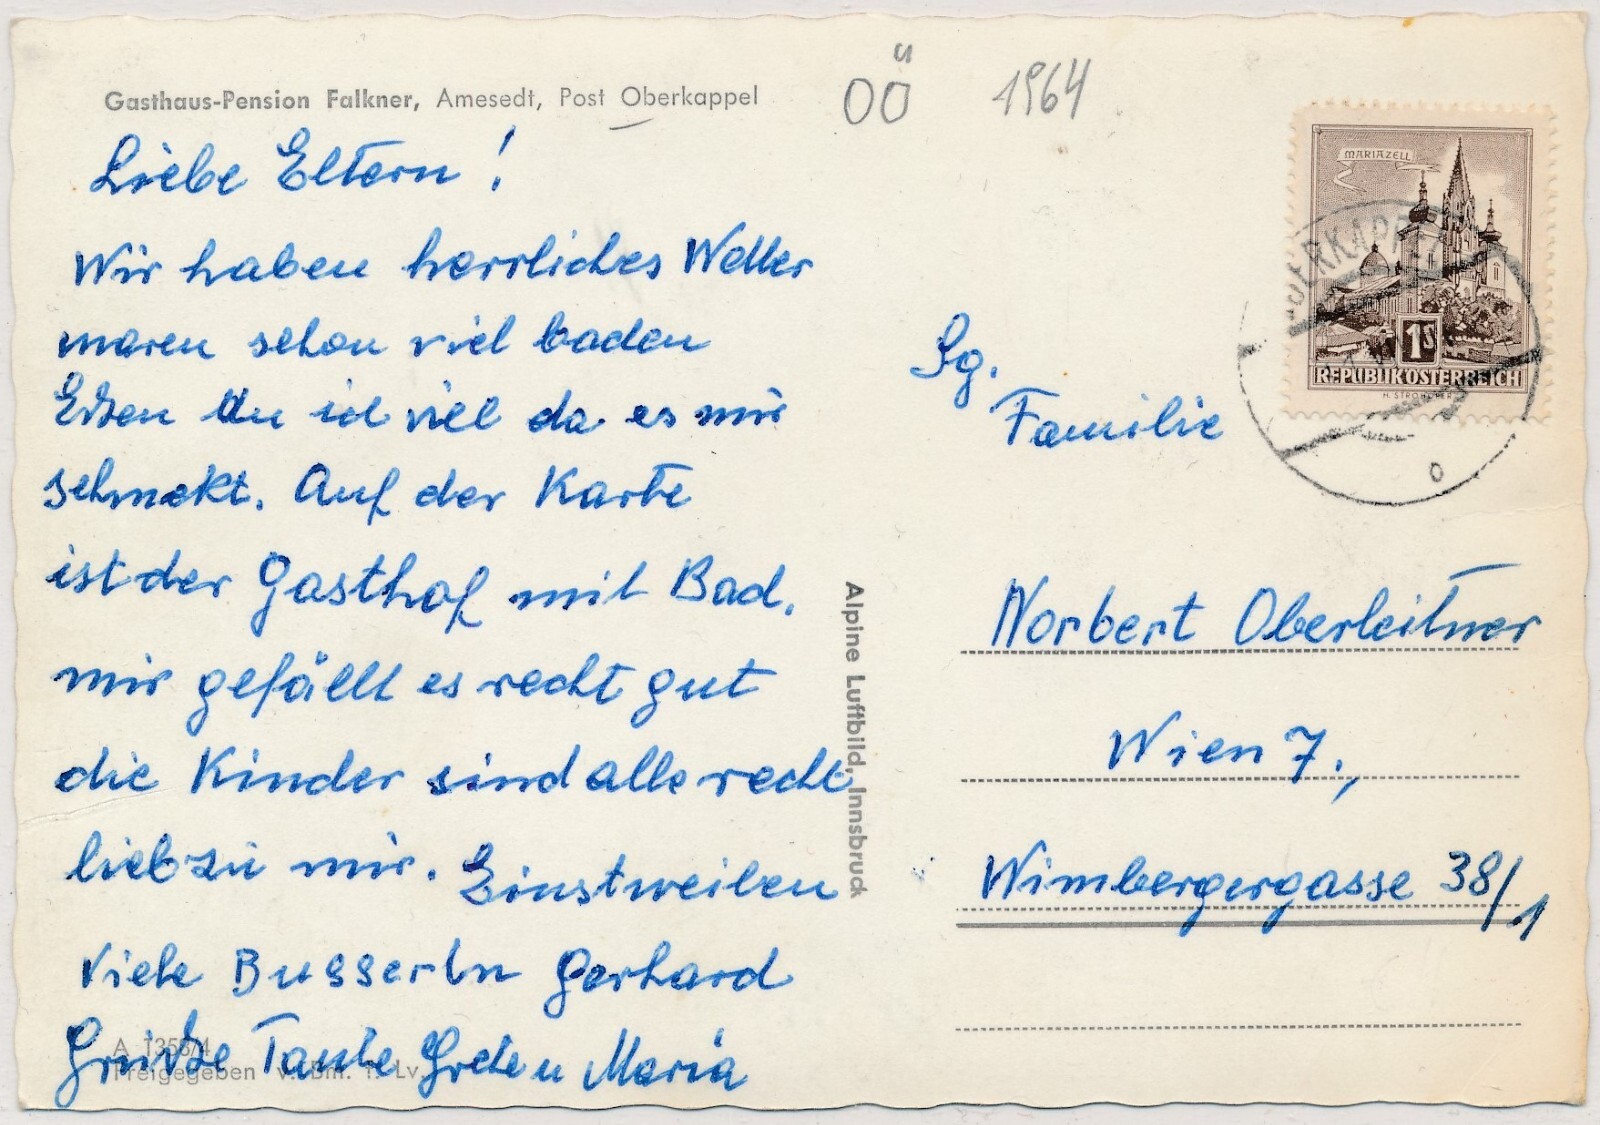 Gasthaus-Pension Falkner, Amesedt, Post Oberkappel
OÖ
1964
Liebe Eltern!
Wir haben herrliches Wetter
waren schon viel baden
Essen tu ich viel da es mir
schmekt. Auf der Karte
ist der Gasthof mit Bad.
mir gefällt es recht gut
die Kinder sind alle recht
lieb zu mir. Einstweilen
Viele Busserln Gerhard
Grüße Tante Greten Maria
A 1358/4
Freigegeben v. Bm. f. Lv.
Alpine Luftbild, Innsbruck
MARIAZELL
1S
REPUBLIK ÖSTERREICH
OBERKAPPEL
Sg.
Familie
Norbert Oberleitner
Wien 7.,
Wimbergergasse 38/1